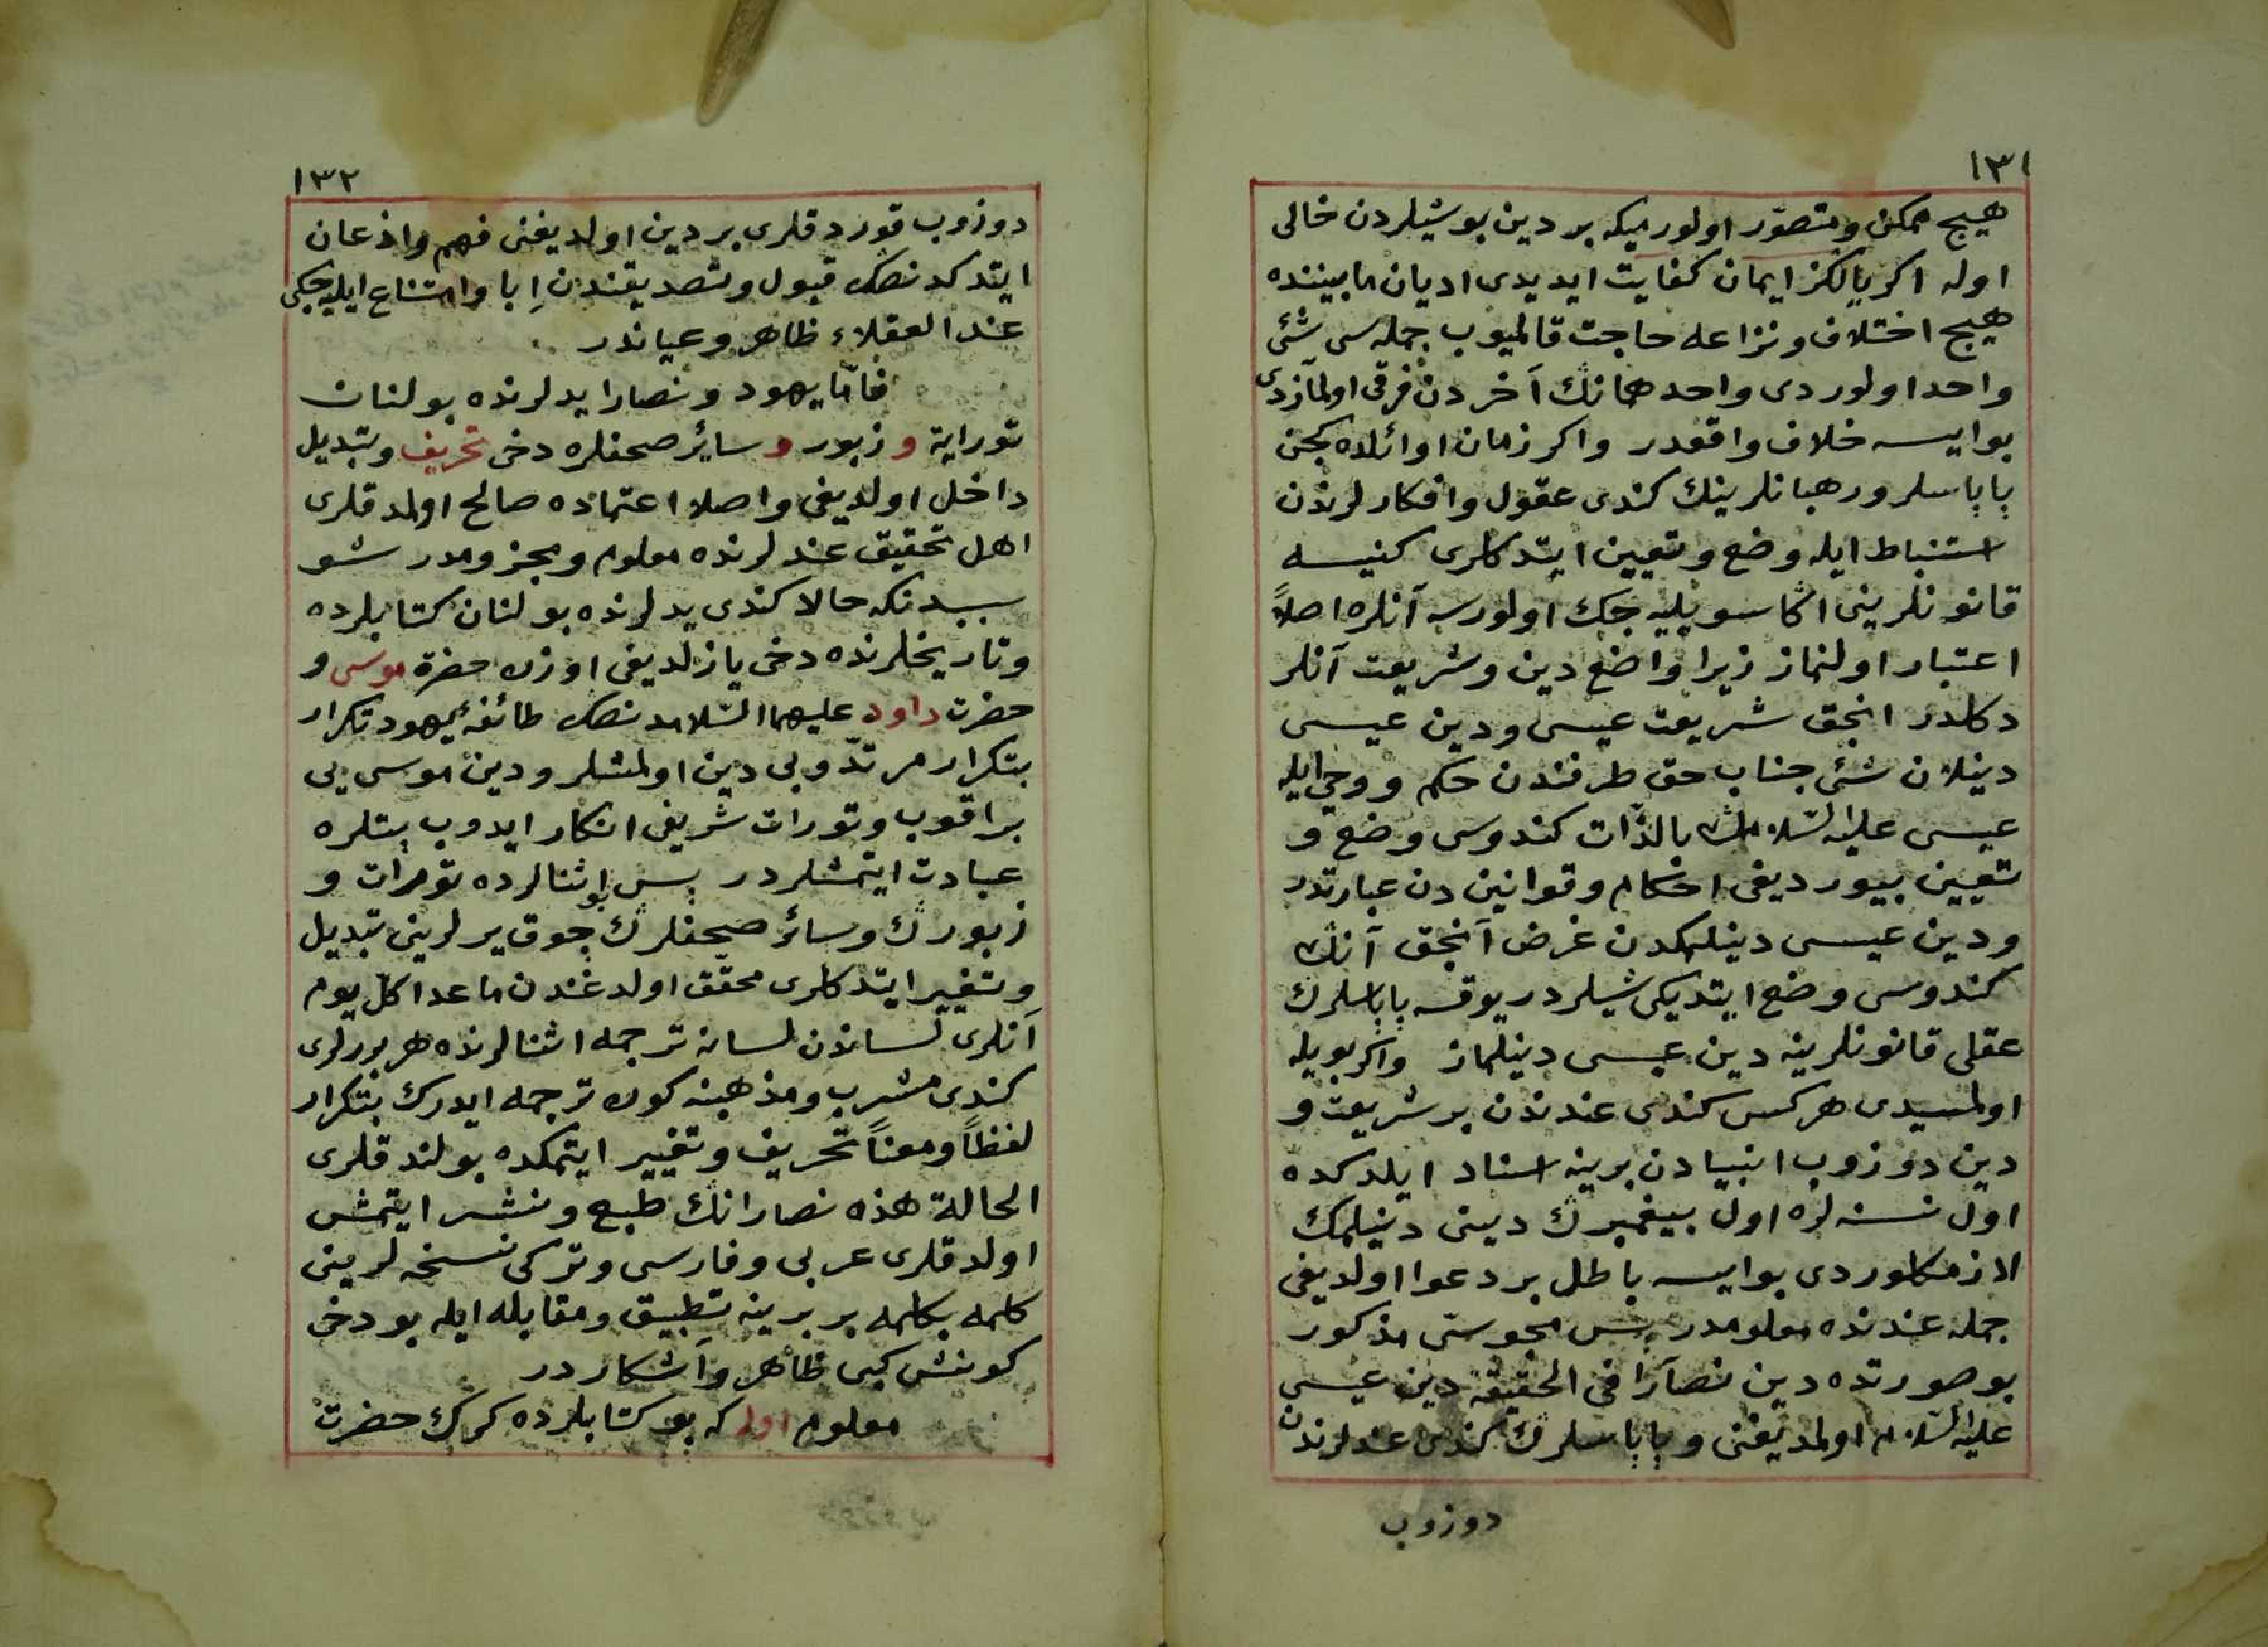 ١٣١
هيچ ممكن و متصوّر اولورميكه بر دين بو شيلردن خالى
اوله اكر يالكز ايمان كفايت ايديدى اديان مابيننده
هيچ اختلاف و نزاعه حاجت قالميوب جمله سى شئى
واحد اولوردى واحد همانك آخردن فرقى اولمازدى
بو ايسه خلاف واقعدر و اكر زمان اوائلده كچن
پاپاسلر و رهبانلرينك كندى عقول و افكارلرندن
استنباط ايله وضع و تعيين ايتدكلرى كنيسه
قانونلرينى اكا سويليه جك اولورسه آنلره اصلاً
اعتبار اولنماز زيرا واضع دين و شريعت آنلر
دكلدر انجق شريعت عيسى و دين عيسى
دينلان شئى جناب حق طرفندن حكم و وحى ايله
عيسى عليه السّلامك بالذّات كندوسى وضع و
تعيين بيورديغى احكام و قوانين دن عبارتدر
و دين عيسى دينلمكدن غرض آنجق آنك
كندوسى وضع ايتديكى شيلردر يوقسه پاپاسلرك
عقلى قانونلرينه دين عيسى دينلماز و اكر بويله
اولمسيدى هركس كندى عندندن بر شريعت و
دين دوزوب انبيادن برينه اسناد ايلدكده
اول نسنه لره اول پيغمبرك دينى دينلمك
لازمكلوردى بو ايسه باطل بر دعوا اولديغى
جمله عندنده معلومدر پس مجوسى مذكور
بو صورتده دين نصارا فى الحقيقه دين عيسى
عليه السّلام اولمديغنى و پاپاسلرك كندى عندلرندن
دوزوب
١٣٢
دوزوب قوردقلرى بر دين اولديغنى فهم و اذعان
ايتدكدنصكره قبول و تصديقندن اِبا و امتناع ايليه جكى
عند العقلاء ظاهر و عياندر
فامّا يهود و نصارا يدلرنده بولنان
توراية و زبور و سائر صحفلره دخى تحريف و تبديل
داخل اولديغى و اصلا اعتماده صالح اولمدقلرى
اهل تحقيق عندلرنده معلوم و مجزومدر شو
سببدنكه حالا كندى يدلرنده بولنان كتابلرده
و تاريخلرنده دخى يازلديغى اوزره حضرة موسى و
حضرت داود عليهما السّلامدنصكره طائفهٔ يهود تكرار
بتكرار مرتدّ و بى دين اولمشلر و دين موسى يى
براقوب و تورات شريفى انكار ايدوب بتلره
عبادت ايتمشلردر پس بو اثنالرده تورات و
زبورك و سائر صحفلرك چوق يرلرينى تبديل
و تغيير ايتدكلرى محقّق اولدغندن ماعدا كلّ يوم
آنلرى لساندن لسانه ترجمه اثنالرنده هر برلرى
كندى مشرب و مذهبنه كوره ترجمه ايدرك بتكرار
لفظاً و معناً تحريف و تغيير ايتمكده بولندقلرى
الحالة هذه نصارانك طبع و نشر ايتمش
اولدقلرى عربى و فارسى و تركى نسخه لرينى
كلمه بكلمه بر برينه تطبيق و مقابله ايله بو دخى
كونش كبى ظاهر و آشكاردر
معلوم اوله كه بو كتابلرده كرك حضرت